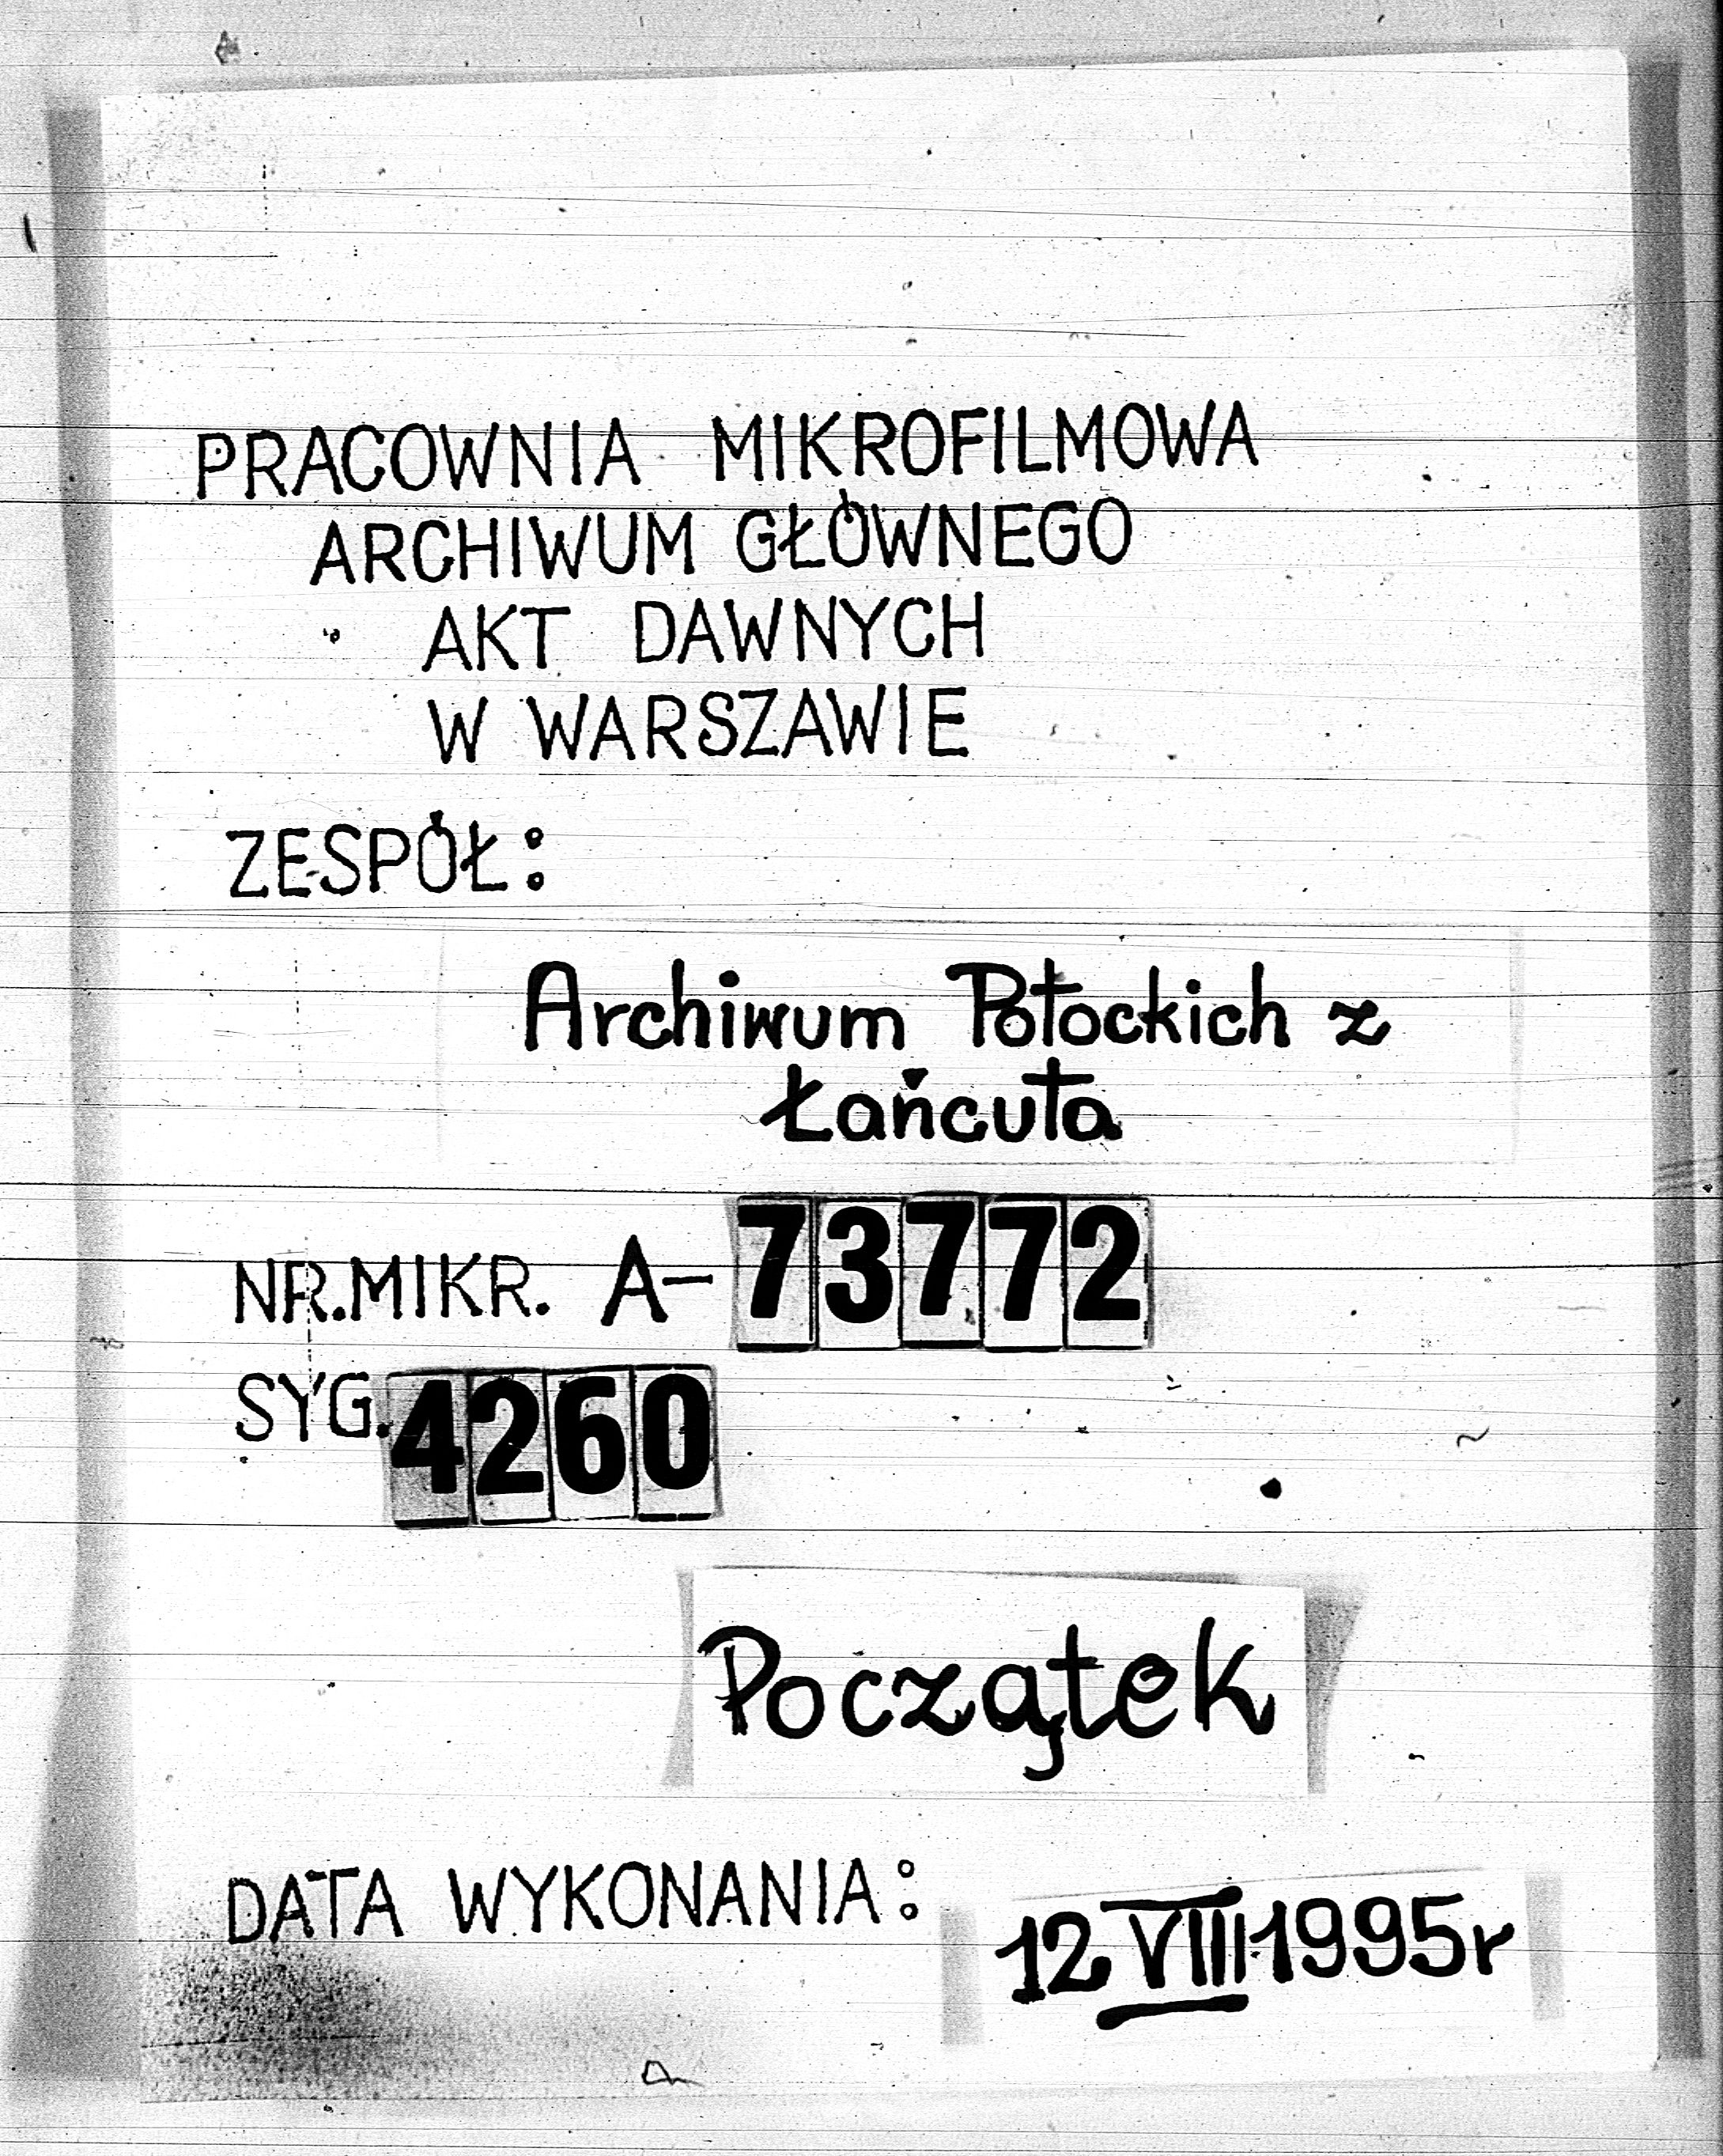 PRACOWNIA MIKROFILMOWA
ARCHIWUM GŁÓWNEGO
AKT DAWNYCH
W WARSZAWIE
ZESPÓŁ:
Archiwum Potockich z
Łańcuta
NR.MIKR. A-73772
SYG. 4260
Początek
DATA WYKONANIA: 12 VIII 1995r